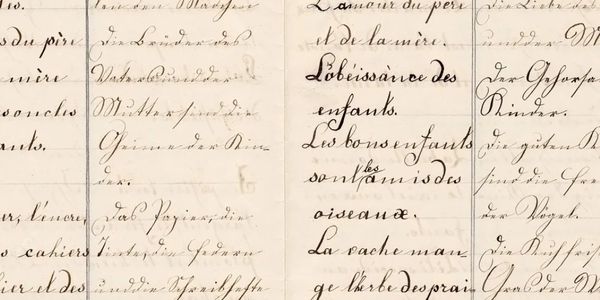 es.
s du père
mère
ants.
er, l'encre,
s cahiers
ier et des
ten den Mädchen
Die Brüder des
Vaters und der
Mutter sind die
der Kin-
der.
Das Papier, die
Tinte, die Federn
und die Schreibhefte
L'amour du père
et de la mère.
L'obéissance des
enfants.
Les bons enfants
sont les amis des
oiseaux.
La vache man-
ge l'herbe des prai-
Die Liebe des
und der M
Der Gehorsa
Kinder.
Die guten K
sind die Fre
der Vögel.
Die Kuh fris
Gras der W